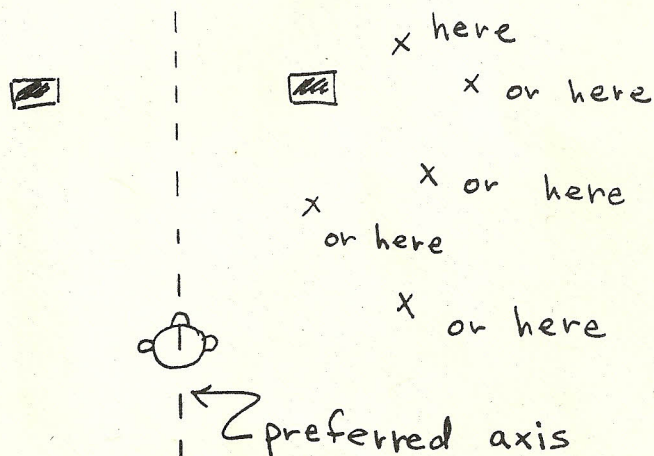 x here
x or here
x or here
x
or here
x or here
preferred axis